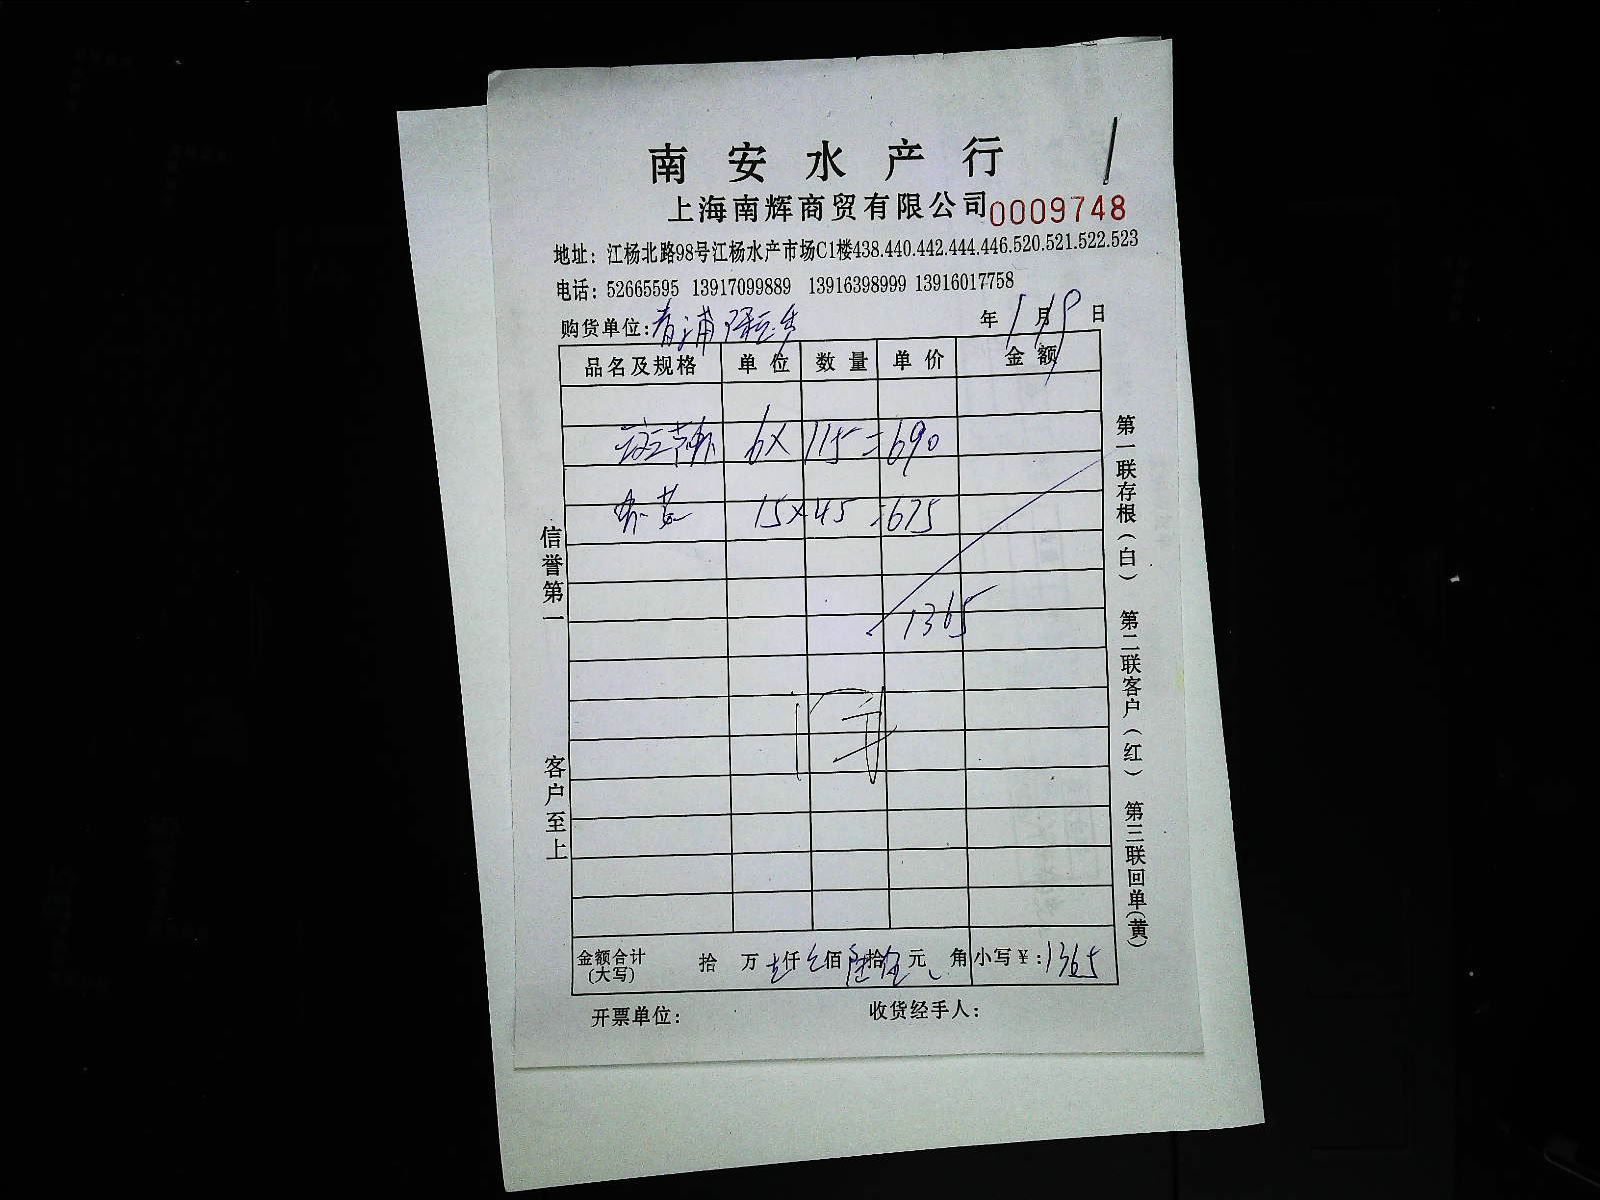 南安水产行
上海南辉商贸有限公司 0009748
地址：江杨北路98号江杨水产市场C1楼438.440.442.444.446.520.521.522.523
电话：52665595 13917099889 13916398999 13916017758
购货单位：青浦 年 1 月 9 日
品名及规格 单位 数量 单价 金额
斑节虾 6× 115=690
15×45=675
1365
金额合计(大写) 拾 万 壹仟 叁佰 陆拾 伍元 角 小写￥：1365
开票单位： 收货经手人：
信誉第一 客户至上
第一联存根(白) 第二联客户(红) 第三联回单(黄)